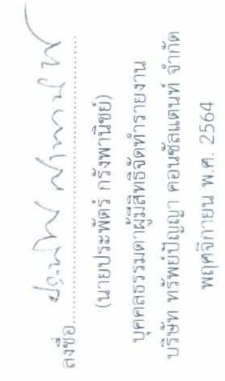 ลงชื่อ......................................................
(นายประพัตร์ กรังพานิชย์)
บุคคลธรรมดาผู้มีสิทธิจัดทำรายงาน
บริษัท ทรัพย์ปัญญา คอนซัลแตนท์ จำกัด
พฤศจิกายน พ.ศ. 2564